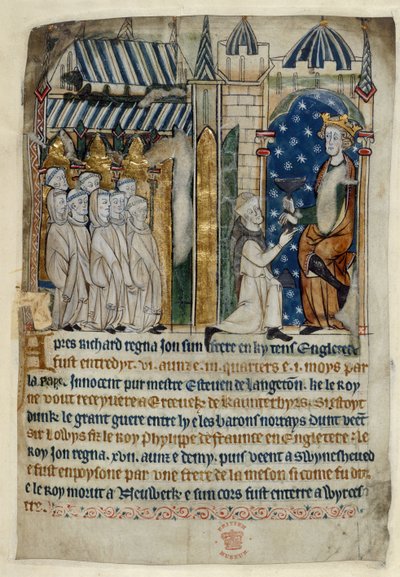 Apres Richard regna Jon sun frere en ky tens Engletere
fust entredyt .vi. aunz e .iii. quarters e .i. moys par
la pape Innocent pur mestre Esteven de langeton. ke le Roy
ne vout receyvere a Erceveske de Kaunterbyre
dunk le grant guere entre ly e les barons norrays dunt veent
sir Lowys fiz le Roy Phylipe de fraunce en Engletere: le
Roy Jon regna .xvii. aunz e demy. puis veent a Swyneheued
e fust enpoysone par une frere de la meson si come fu dit
e le Roy morut a Neuwerk e sun cors fust enterre a Wyrces
tre.
BRITISH
MUSEUM